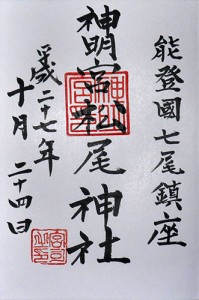 能登國七尾鎮座
神明宮松尾神社
平成二十七年
十月二十四日